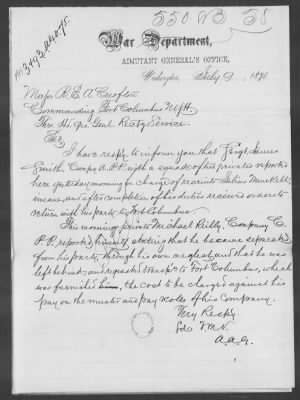 War Department,
ADJUTANT GENERAL'S OFFICE,
Washington, July 9, 1870.
Major R. E. A. Crofton
Commanding Fort Columbus N.Y.H.
Thro. Hd. Qrs. Genl. Rectg Service.
Sir,
I have resply. to inform you that James
Smith, Compy A. P.P. with a squad of two privates reported
here yesterday morning in charge of recruit Julius
insane, and after completion of his duties received orders to
return with his party to Fort Columbus.
This morning private Michael Reilly, Company C.
P.P. reported himself stating that he became separated
from his party, through his own neglect, and that he was
left behind and requested transpn. to Fort Columbus, which
was furnished him, the cost to be charged against his
pay on the muster and pay rolls of his company.
Very Resply.
A.A.G.